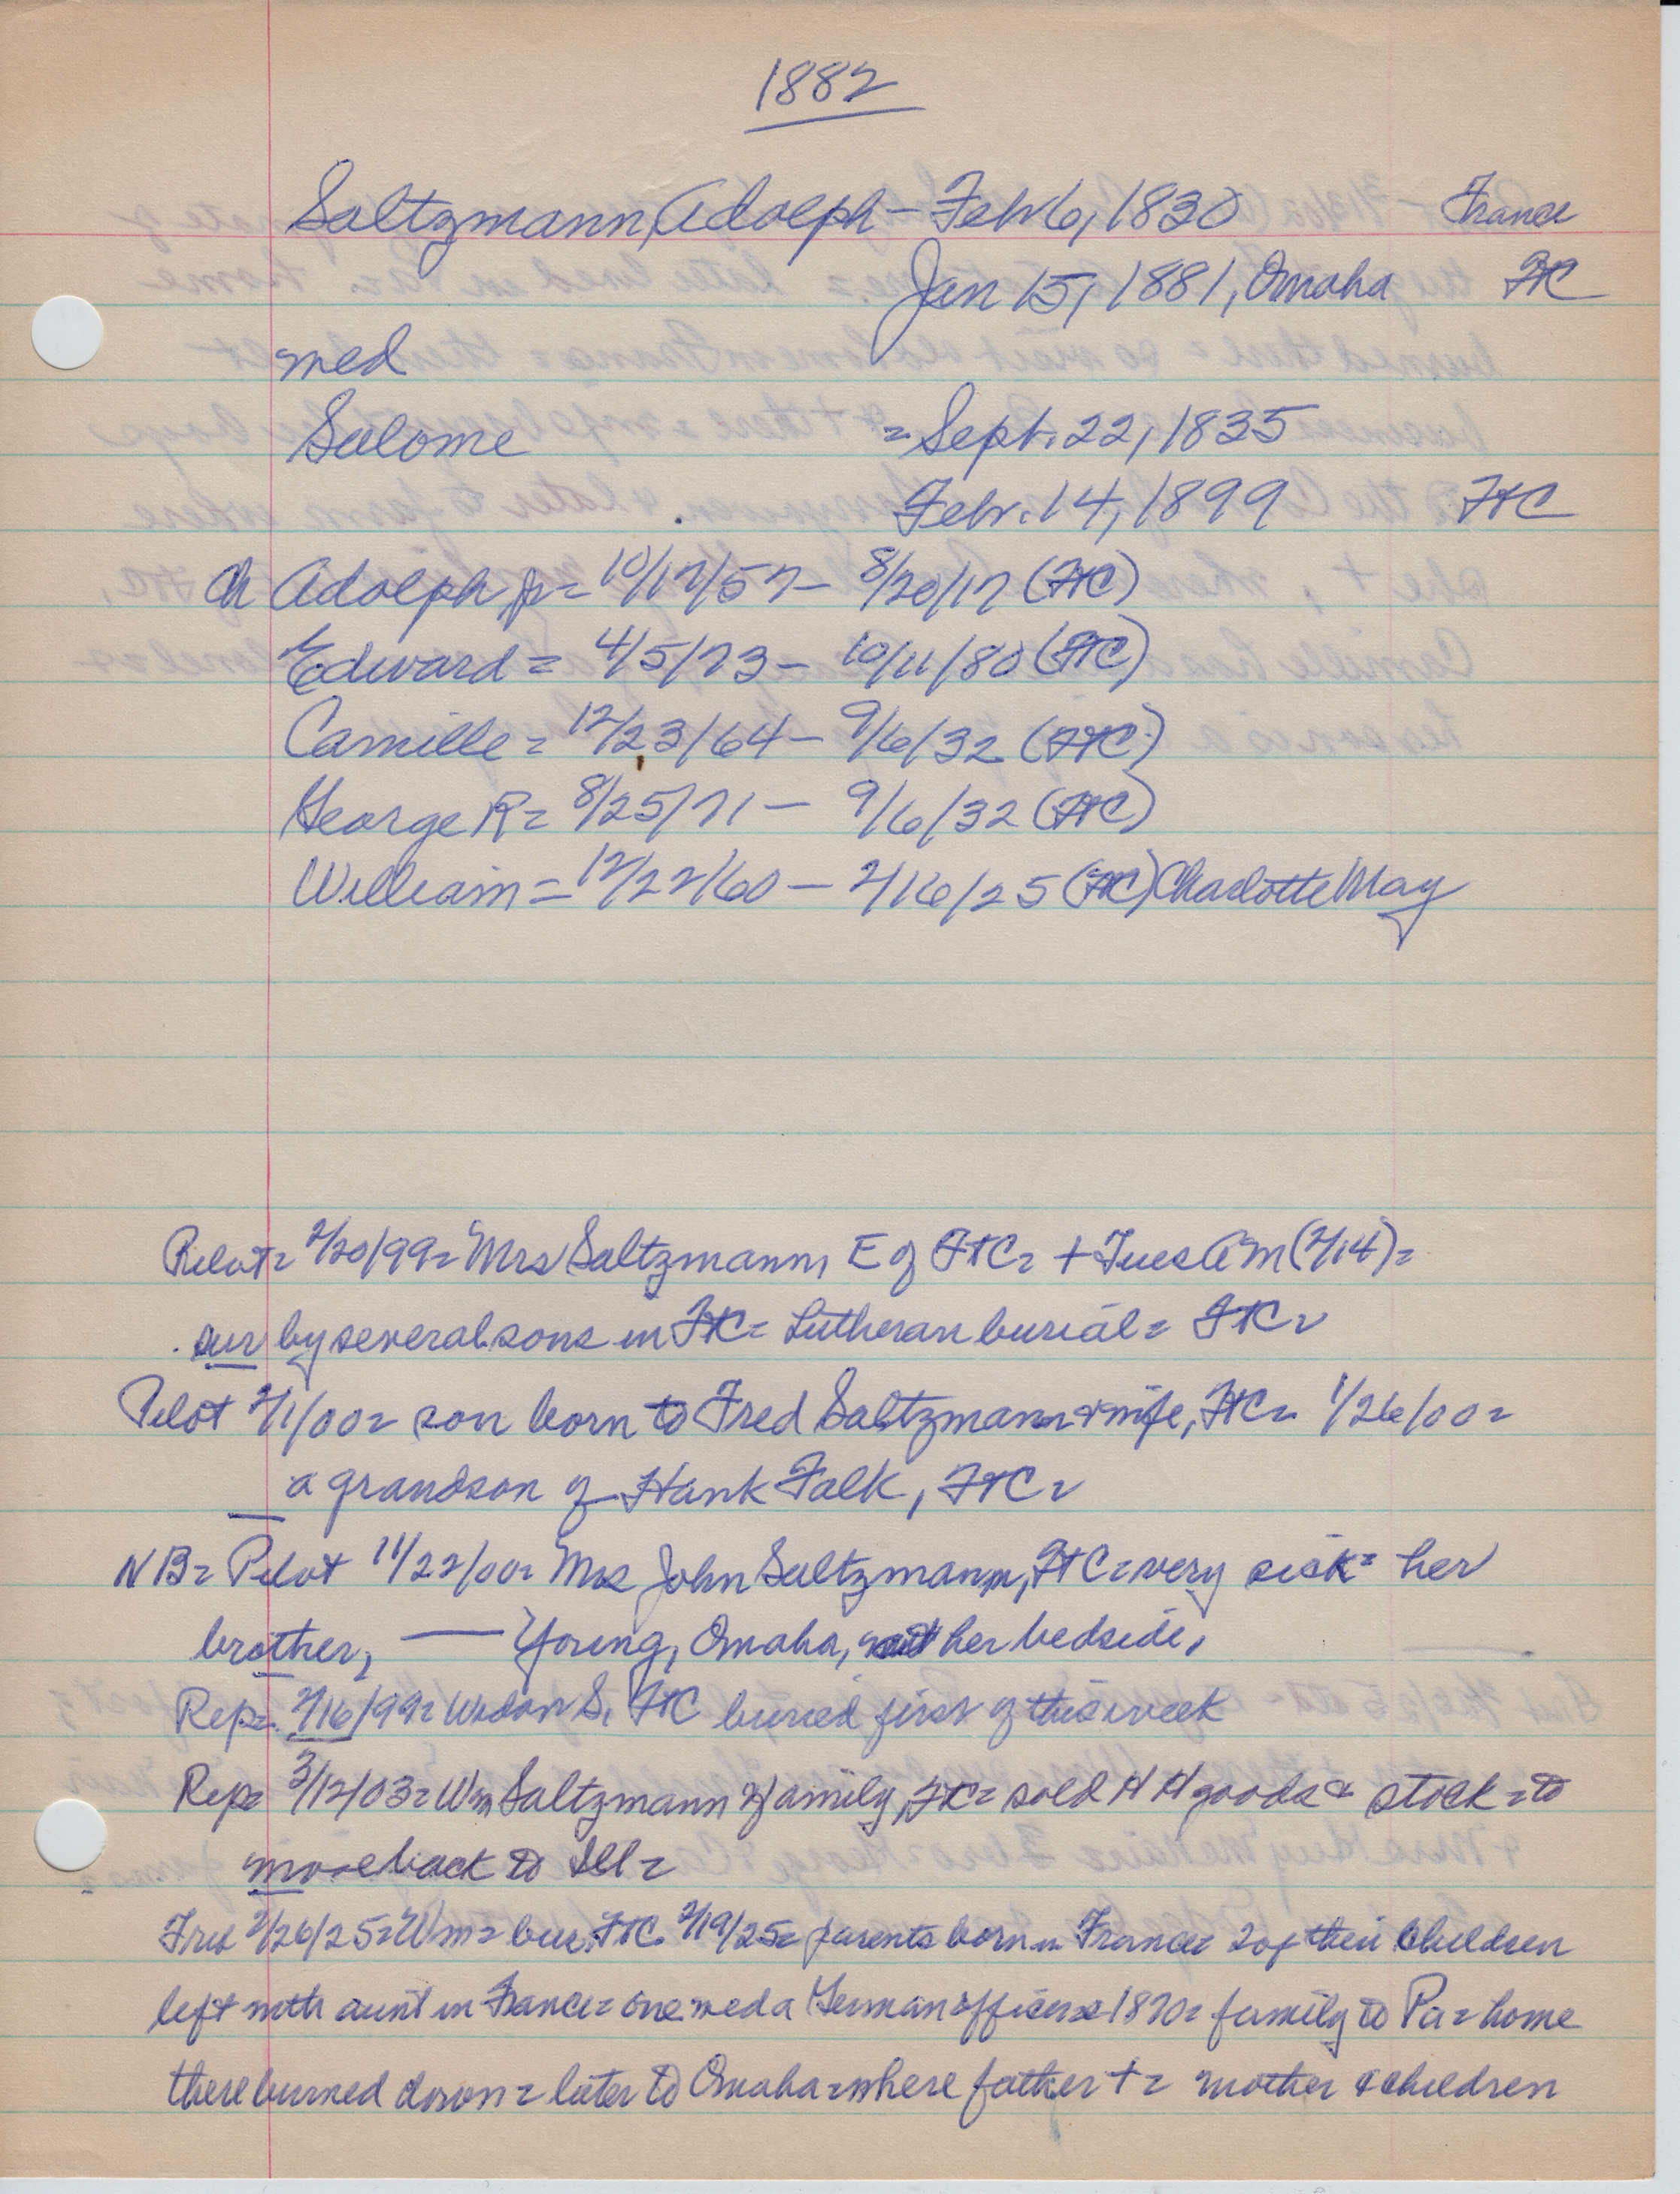 1882
Saltzmann, Adolph - Feb 6, 1830 France
Jan 15, 1881, Omaha FtC
med
Salome = Sept. 22, 1835
Febr. 14, 1899 FtC
Ch Adolph jr = 10/17/57 - 8/20/17 (FtC)
Edward = 4/5/73 - 10/11/80 (FtC)
Camille = 12/23/64 - 9/6/32 (FtC)
George R = 8/25/71 - 9/6/32 (FtC)
William = 12/22/60 - 2/16/25 (FtC) Charlotte May
Pilot = 2/20/99 = Mrs Saltzmann, E of FtC = + Tues AM (2/14) =
sur by several sons in FtC = Lutheran burial = FtC =
Pilot 2/1/00 = son born to Fred Saltzmann & wife, FtC = 1/26/00 =
a grandson of Hank Falk, FtC =
NB = Pilot 11/22/00 = Mrs John Saltzmann, FtC = very sick = her
brother, — Young, Omaha, at her bedside,
Rep = 2/16/99 = Widow S, FtC buried first of this week
Rep = 3/12/03 = Wm Saltzmann & family, FtC = sold H H goods & stock = to
move back to Ill =
2/26/25 = Wm = bur. FtC 2/19/25 = parents born in France = 2 of their children
left with aunt in France = one med a German officer = 1870 = family to Pa = home
there burned down = later to Omaha = where father + = mother & children